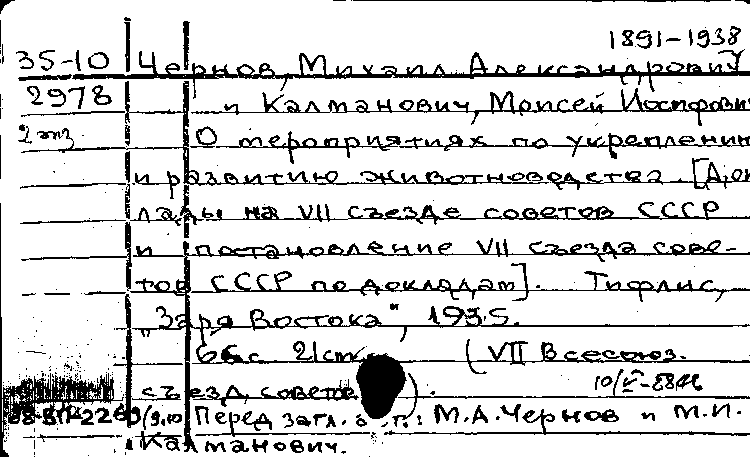 1891-1938
35-10 Чернов, Михаил Александрович
2978 и Калманович, Моисей Иосифович
2 экз О мероприятиях по укреплению
и развитию животноводства. [Док
лады на VII съезде советов СССР
и постановление VII съезда сове-
тов СССР по докладам]. Тифлис,
"Заря Востока", 1935.
66 с. 21 см. (VII Всесоюз.
съезд советов).
Перед загл. : М.А. Чернов и М.И.
Калманович.